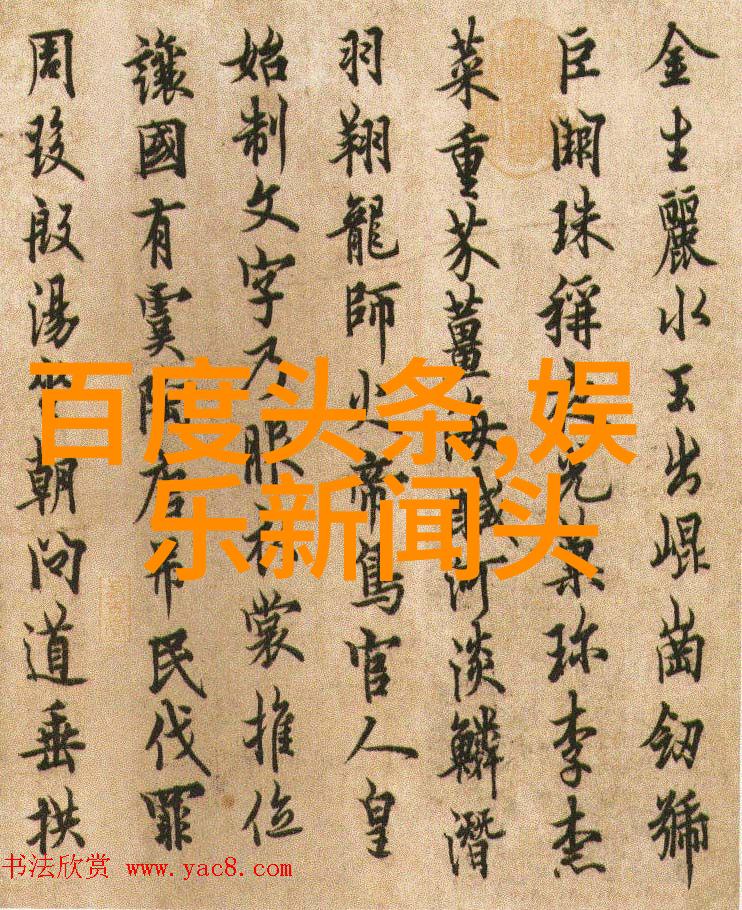 金生麗水玉出崐崗釼號
巨闕珠稱夜光菓珎李柰
菜重芥薑海醎河淡鱗潛
羽翔龍師火帝鳥官人皇
始制文字乃服衣裳推位
讓國有虞陶唐吊民伐罪
周發殷湯坐朝問道垂拱
百度头条,娱
乐新闻头
书法欣赏 www.yac8.com